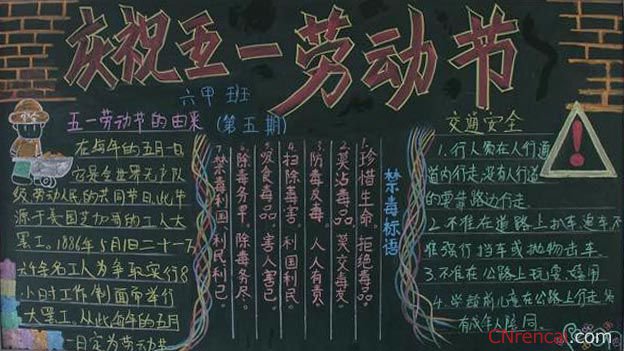 庆祝五一劳动节
六甲班
(第五期)
五一劳动节的由来
在每年的五月一日
它是全世界无产队
级,劳动人民的共同节日,此节
源于美国芝加哥的工人大
罢工。1886年5月1日二十一万
六千余名工人为争取实行8
小时工作制而举行
大罢工。从此每年的五月
一日定为劳动节
禁毒标语
1.珍惜生命。拒绝毒品。
2.莫沾毒品。莫交毒友。
3.防毒反毒。人人有责
4.扫除毒害。利国利民。
5.吸食毒品。害人害己。
6.除毒务早。除毒务尽。
7.禁毒利国、利民利己。
交通安全
1.行人需在人行道
道内行走,没有人行道
的要靠路边行走
2.不准在道路上扒车追车,不
准强行挡车或抛物击车
3.不准在公路上玩耍、嬉闹
4.学龄前儿童在公路上行走
有成年人陪同。
CNrencai.com